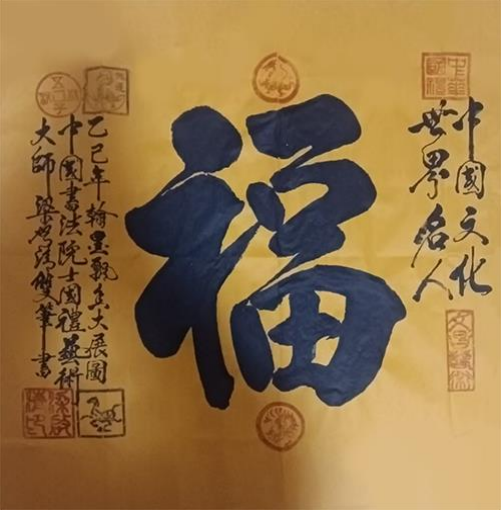 中國文化
世界名人
福
乙巳年翰墨飄香大展圖
中國書法院士國禮藝術
大師梁啓濤雙筆書